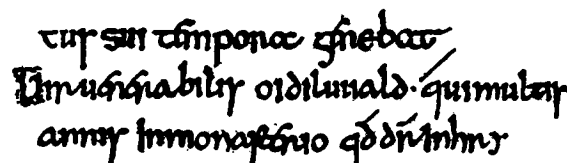 tus sui tempora gerebat
Uir uenerabilis oidiluald. qui multis
annis in monasterio qđ dr̄ inhry